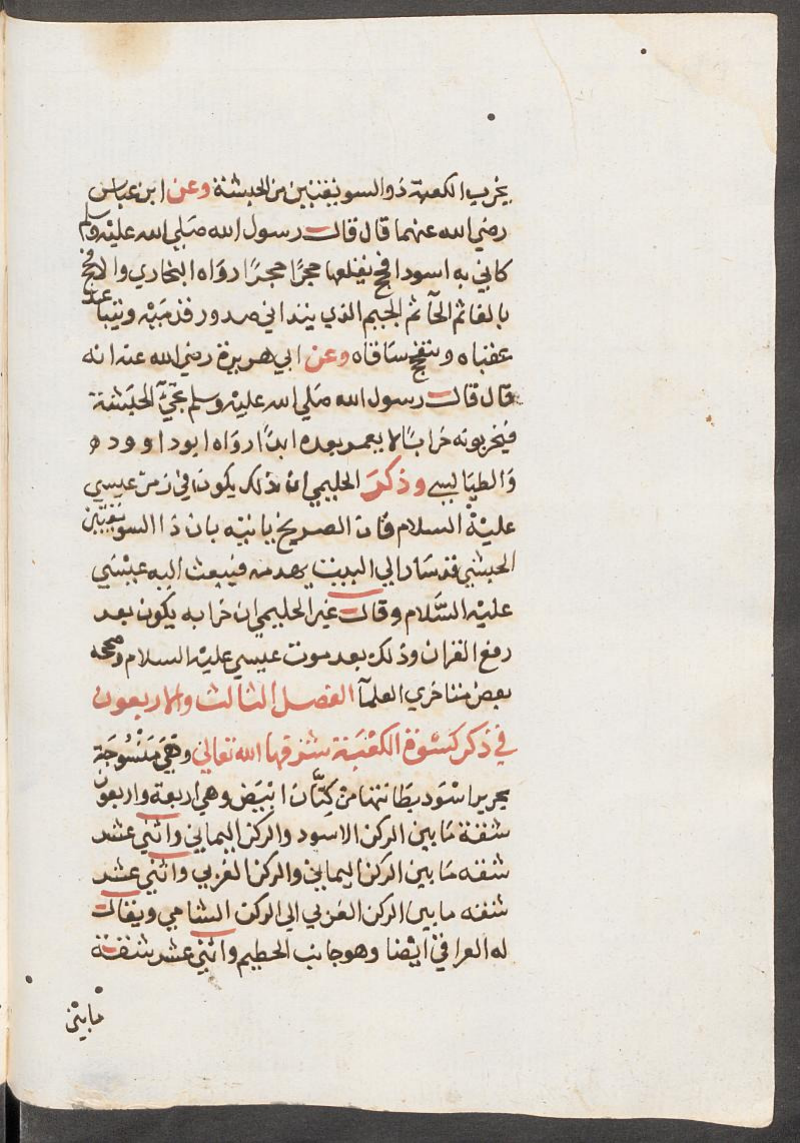 يخرب الكعبة ذو السويقتين من الحبشة وعن ابن عباس
رضي الله عنهما قال قال رسول الله صلي الله عليه وسلم
كاني به اسود افحج يقلعها حجرًا حجرًا رواه البخاري والافحج
الذي يتداني صدور قدميه وتتباعد
عقباه وينفحج ساقاه وعن ابي هريرة رضي الله عنه انه
قال قال رسول الله صلي الله عليه وسلم تجيٓ الحبشة
فيخربونه خرابًا لا يعمر بعده ابدًا رواه ابو داوود
والطيالسي وذكر الحليمي ان ذلك يكون في زمن عيسي
عليه السلام وان الصريخ ياتيه بان ذا السويقتين
الحبشي قد سار الي البيت يهدمه فيبعث اليه عيسي
عليه السَّلام وقال غير الحليمي ان خرابه يكون بعد
رفع القران وذلك بعد موت عيسي عليه السلام وصححه
بعض متاخري العلمآ الفصل الثالث والاربعون
في ذكر كسوة الكعبة شرفها الله تعالي وهي منسوجة
بحرير اسود بطانتها من كتَّان ابيض وهي اربعة واربعون
شقة ما بين الركن الاسود والركن اليماني واثني عشر
شقه ما بين الركن اليماني والركن الغربي واثني عشر
شقه ما بين الركن الغربي الي الركن الشامي ويقال
له العراقي ايضا وهو جانب الحطيم واثني عشر شقة
مابين